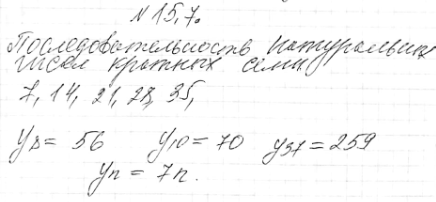 №15.7.
Последовательность натуральных
чисел кратных семи
7, 14, 21, 28, 35,
y₈ = 56 y₁₀ = 70 y₃₇ = 259
yn = 7n.